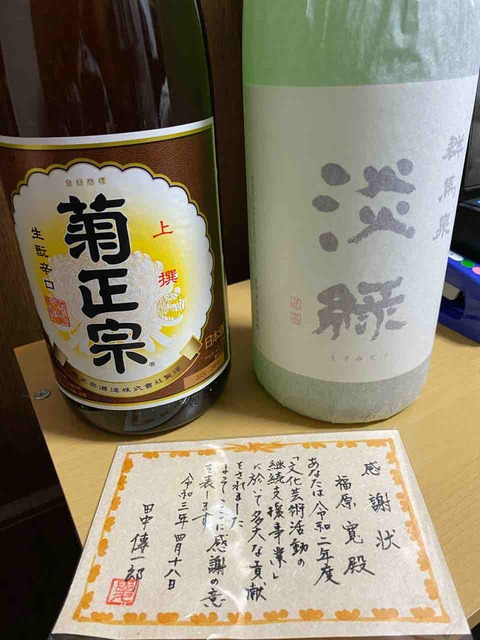 登録商標
上撰
菊正宗
生酛辛口
日本酒
正宗酒造株式會社製造
群馬泉
淡緑
うすみどり
感謝状
福原寛殿
あなたは令和二年度
「文化芸術活動の
継続支援事業」
に於いて多大な貢献
をされました
よってここに感謝の意
を表します
令和三年四月十八日
田中傳一郎